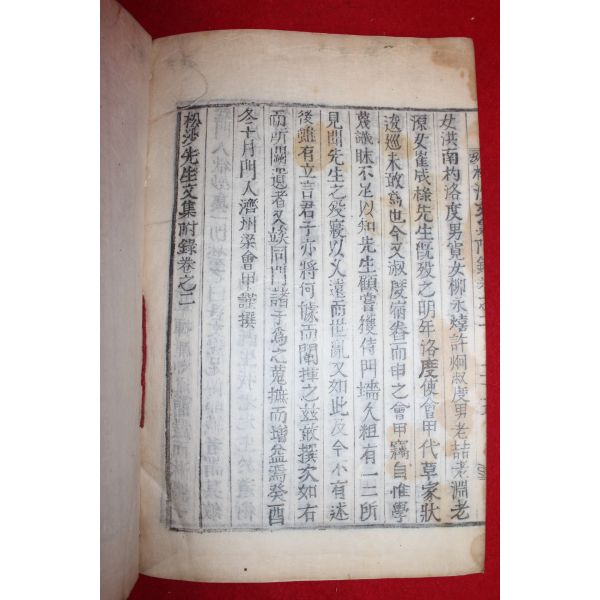 女洪南杓洛度男寬女柳永燨許炯叔度男老喆老淵老
源女崔成樣先生旣歿之明年洛度使會甲代草家狀
逡巡未敢爲也今又淑度嶺眷而申之會甲竊自惟學
蔑識昧不足以知先生顧嘗獲侍門墻久粗有一二所
見聞先生之歿寢以久遠而世亂又如此及今不有述
後雖有立言君子亦將何據而闡揮之玆敢撰次如右
而所闕遺者又竢同門諸子爲之蒐摭而增益焉癸酉
冬十月門人濟州梁會甲謹撰
松沙先生文集附錄卷之二